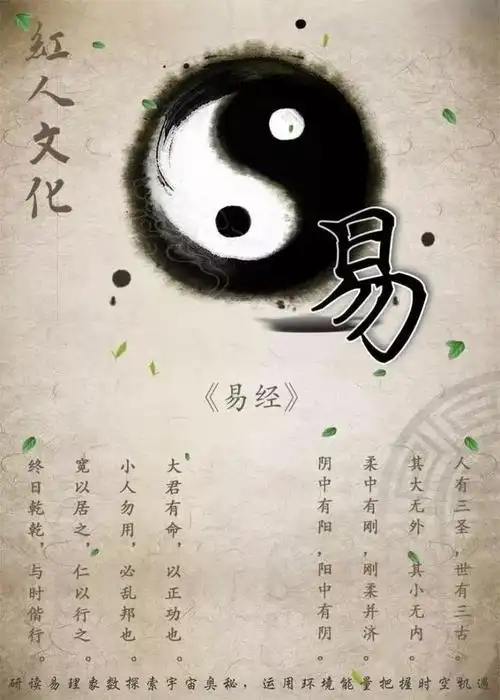 紅人文化
易
《易经》
人有三圣，世有三古。
其大无外，其小无内。
柔中有刚，刚柔并济。
阴中有阳，阳中有阴。
大君有命，以正功也。
小人勿用，必乱邦也。
宽以居之，仁以行之。
终日乾乾，与时偕行。
研读易理象数探索宇宙奥秘，运用环境能量把握时空机遇